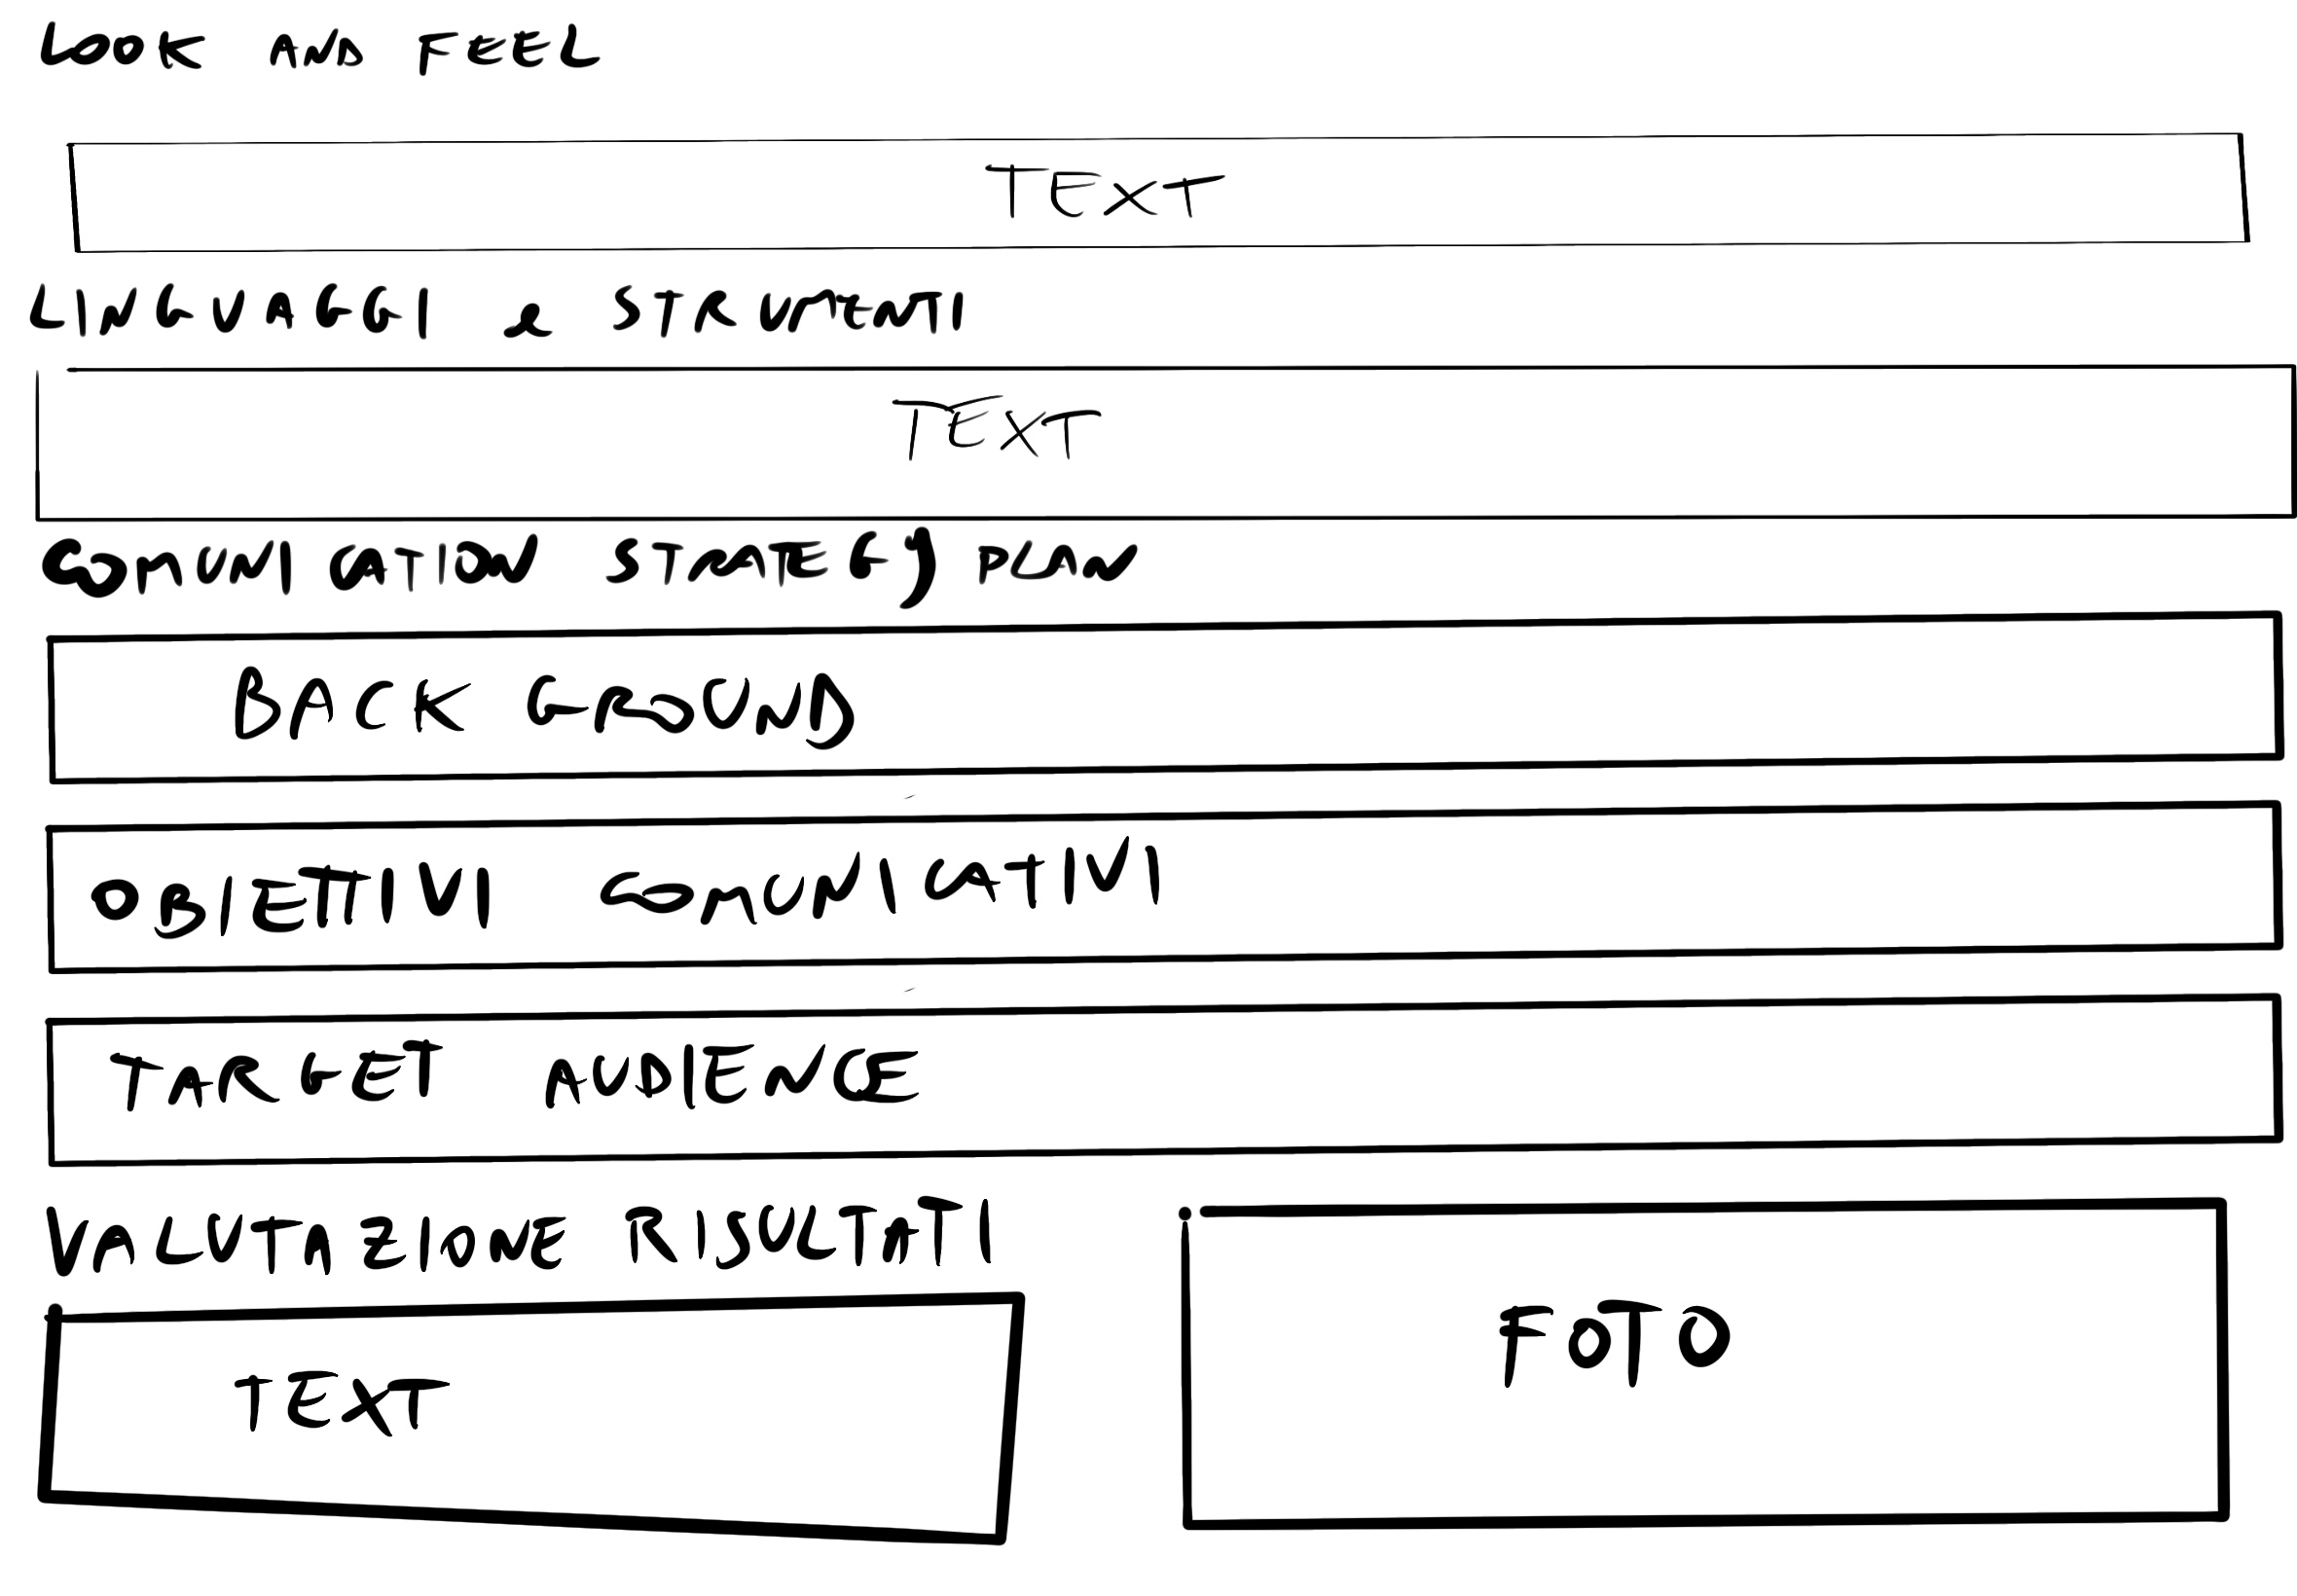 LOOK AND FEEL
TEXT
LINGUAGGI e STRUMENTI
TEXT
COMUNICATION STRATEGY PLAN
BACK GROUND
OBIETTIVI COMUNICATIVI
TARGET AUDIENCE
VALUTAZIONE RISULTATI
TEXT
FOTO